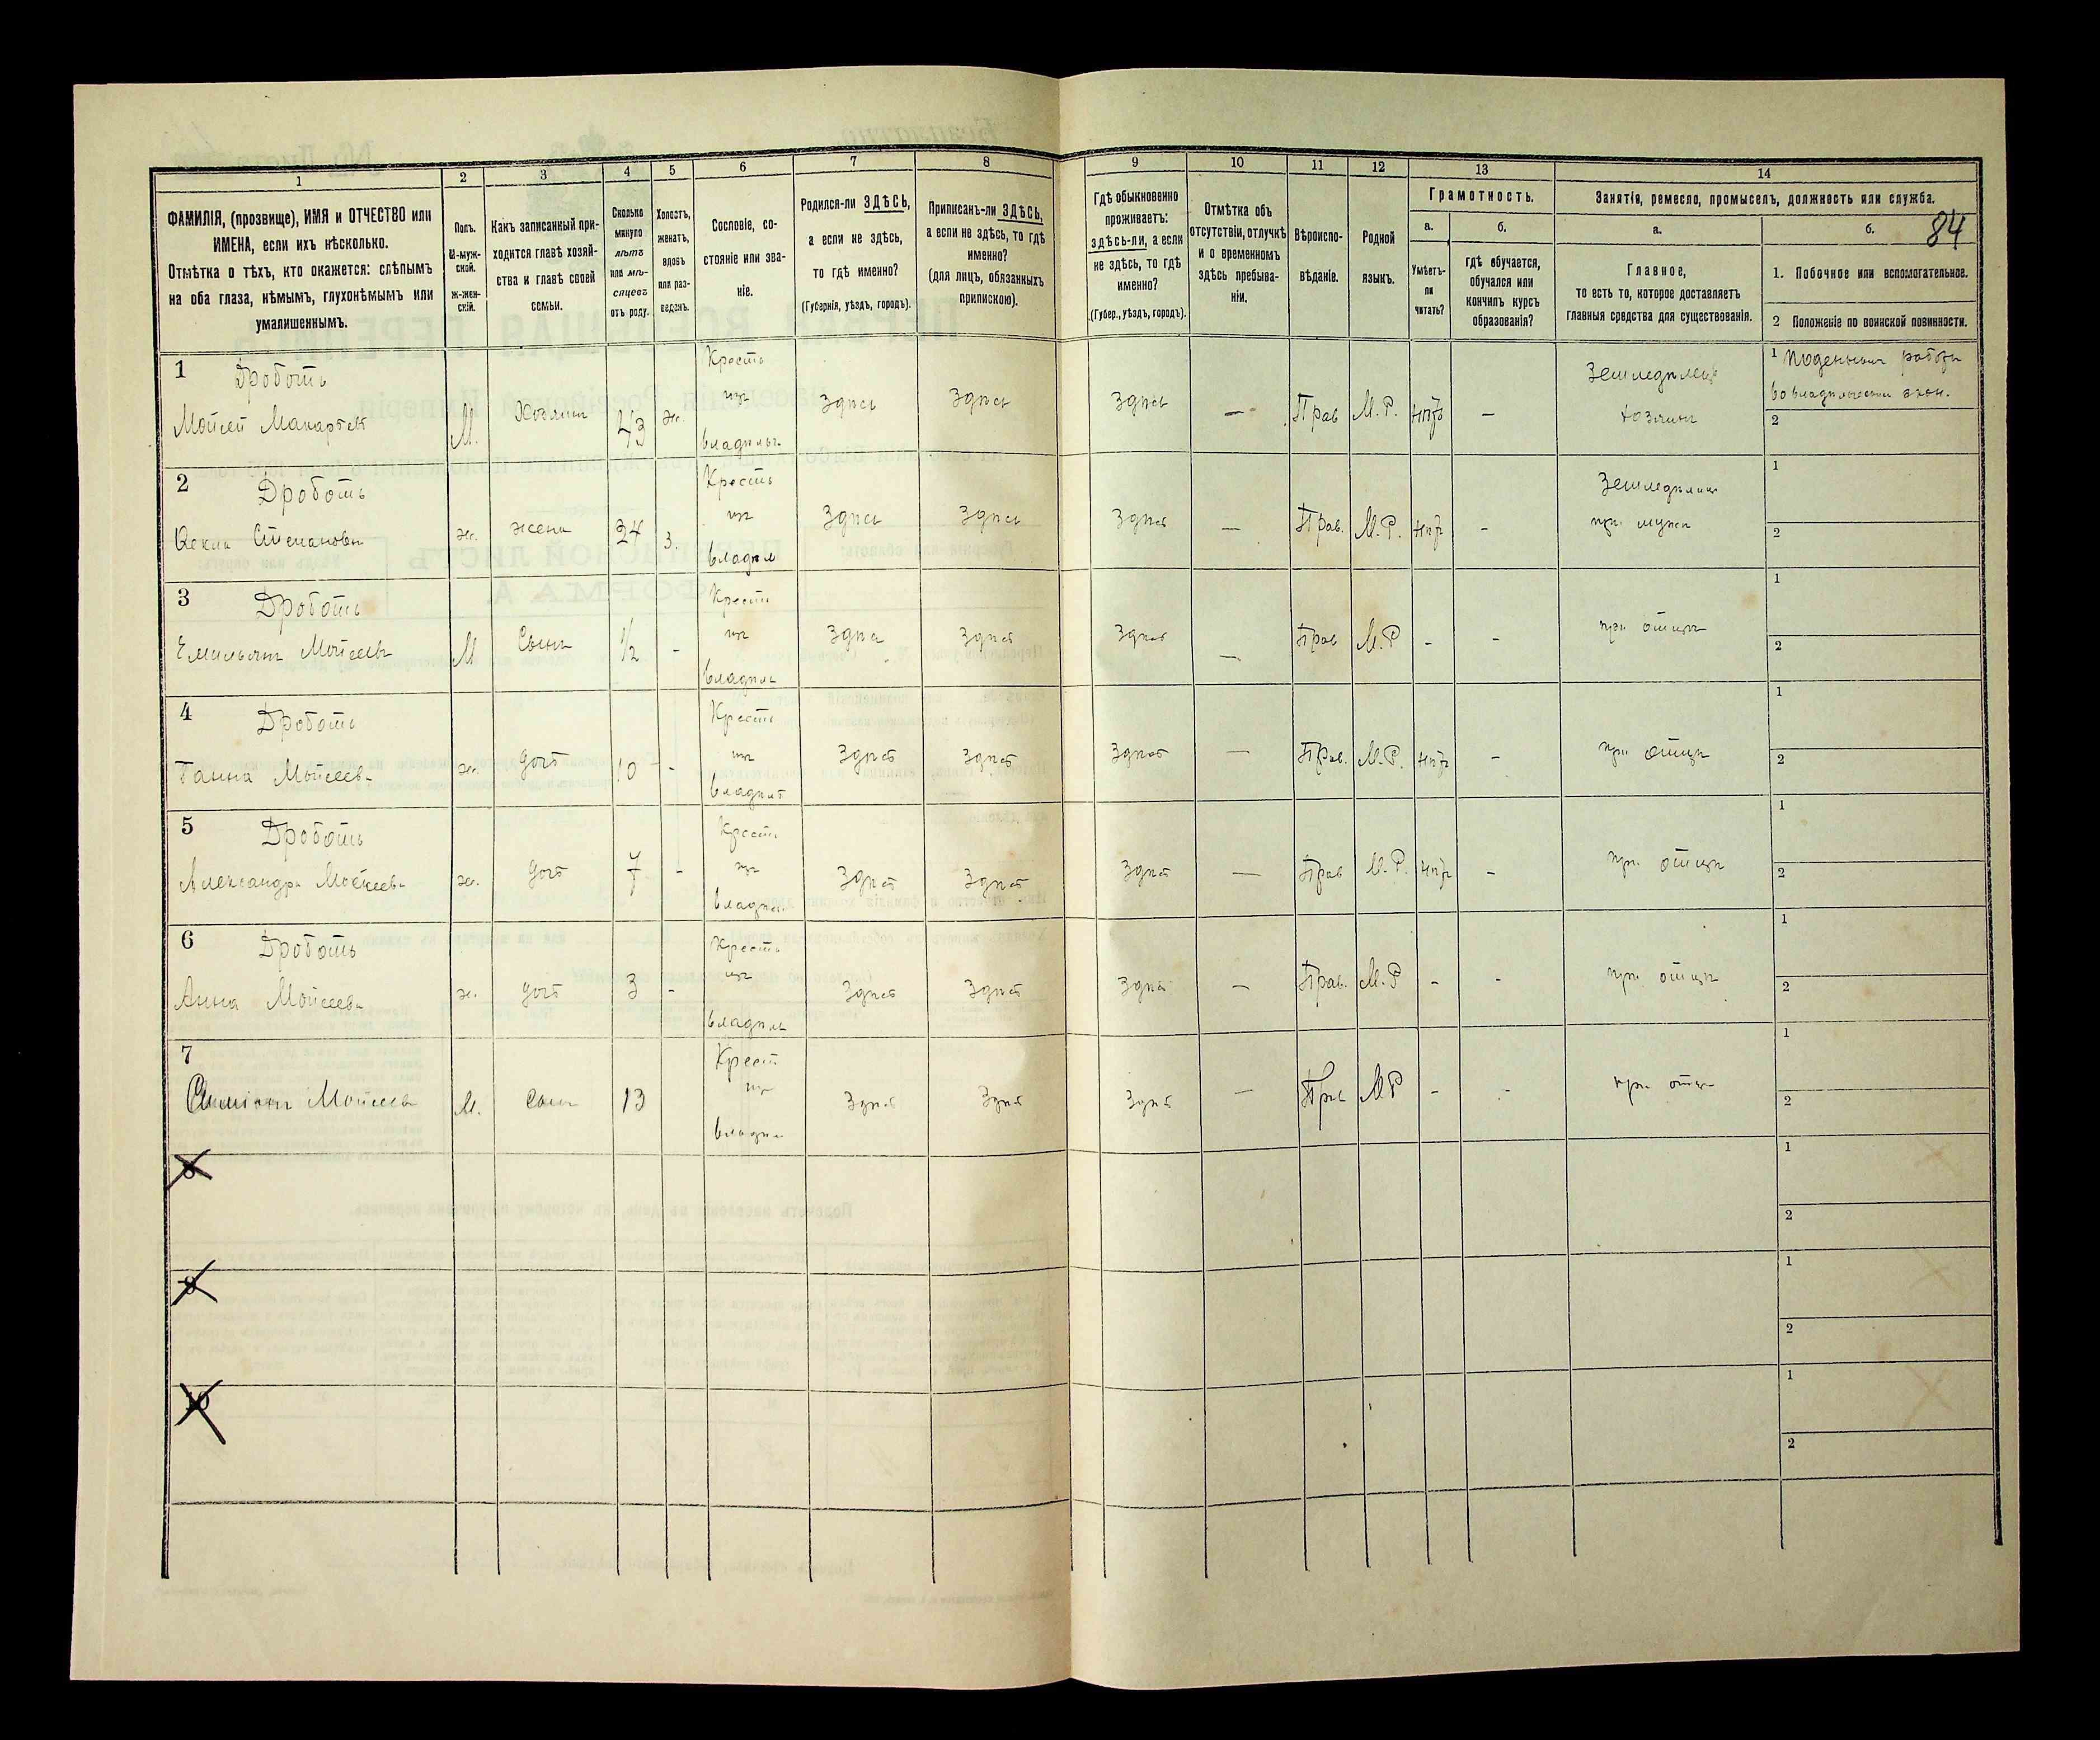 1 2 3 4 5 6 7 8 9 10 11 12 13 14
84
ФАМИЛІЯ, (прозвище), ИМЯ и ОТЧЕСТВО или
ИМЕНА, если ихъ нѣсколько.
Отмѣтка о тѣхъ, кто окажется: слѣпымъ
на оба глаза, нѣмымъ, глухонѣмымъ или
умалишеннымъ.
Полъ.
М-муж-
ской.
ж-жен-
скій.
Какъ записанный при-
ходится главѣ хозяй-
ства и главѣ своей
семьи.
Сколько
минуло
лѣтъ
или мѣ-
сяцевъ
отъ роду.
Холостъ,
женатъ,
вдовъ
или раз-
веденъ.
Сословіе, со-
стояніе или зва-
ніе.
Родился-ли ЗДѢСЬ,
а если не здѣсь,
то гдѣ именно?
(Губернія, уѣздъ, городъ).
Приписанъ-ли ЗДѢСЬ,
а если не здѣсь, то гдѣ
именно?
(для лицъ, обязанныхъ
припискою).
Гдѣ обыкновенно
проживаетъ:
здѣсь-ли, а если
не здѣсь, то гдѣ
именно?
(Губер., уѣздъ, городъ).
Отмѣтка объ
отсутствіи, отлучкѣ
и о временномъ
здѣсь пребыва-
ніи.
Вѣроиспо-
вѣданіе.
Родной
языкъ.
Грамотность.
а.
Умѣетъ-
ли
читать?
б.
гдѣ обучается,
обучался или
кончилъ курсъ
образованія?
Занятія, ремесло, промыселъ, должность или служба.
а.
Главное,
то есть то, которое доставляетъ
главныя средства для существованія.
б.
1. Побочное или вспомогательное.
2 Положеніе по воинской повинности.
1 Дроботь
Мойсей М. Хозяинъ 43 ж.
Кресть изъ
Здѣсь Здѣсь Здѣсь — Прав М.Р. нѣтъ —
Хозяинъ
1
2
2 Дроботь
ж. жена 34 з.
Кресть изъ владѣл
Здѣсь Здѣсь Здѣсь — Прав. М.Р. нѣт -
при мужѣ
1
2
3 Дроботь
М Сынъ 1/2 -
Кресть изъ владѣль
Здѣсь Здѣсь Здѣсь — Прав М.Р - -
при отцѣ
1
2
4 Дроботь
Ганна Мойсеева ж. дочь 10 -
Кресть изъ владѣль
Здѣсь Здѣсь Здѣсь — Прав. М.Р. нѣт -
при отцѣ
1
2
5 Дроботь
Александра Мойсеева ж. дочь 7 -
Кресть изъ владѣл
Здѣсь Здѣсь Здѣсь — Прав М.Р. нѣт -
при отцѣ
1
2
6 Дроботь
Анна Мойсеева ж. дочь 3 -
Кресть изъ владѣль
Здѣсь Здѣсь Здѣсь — Прав. М.Р - -
при отцѣ
1
2
7
Мойсеев М. Сынъ 13
Крест из владѣл
Здѣсь Здѣсь Здѣсь — М.Р - -
при отцѣ
1
2
8
1
2
9
1
2
10
1
2